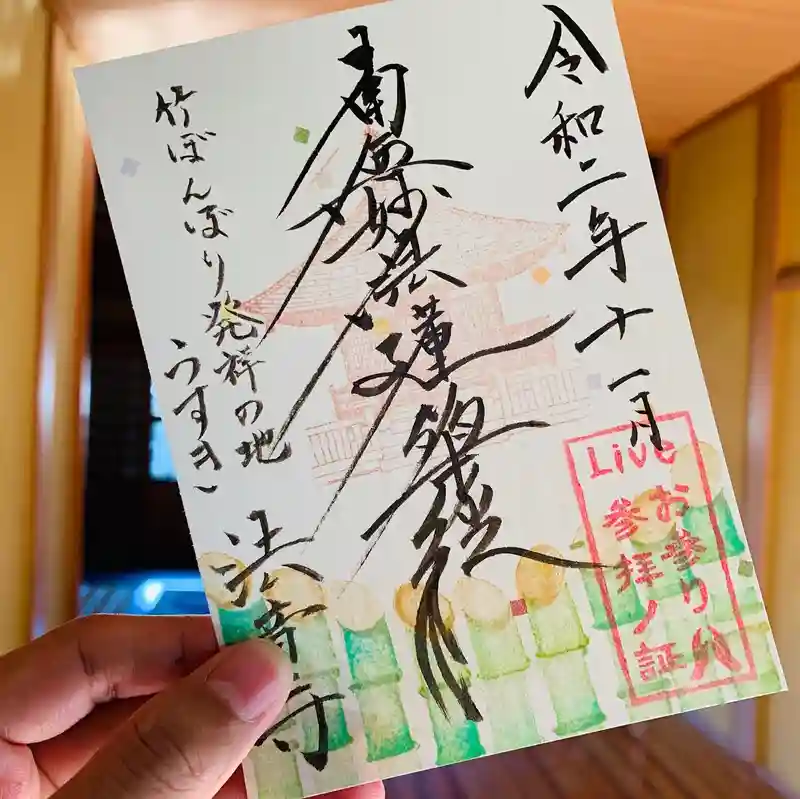 令和二年十一月
Live
お参り八
参拝ノ証
南無妙法蓮華経
竹ぼんぼり発祥の地
うすき〜
法音寺